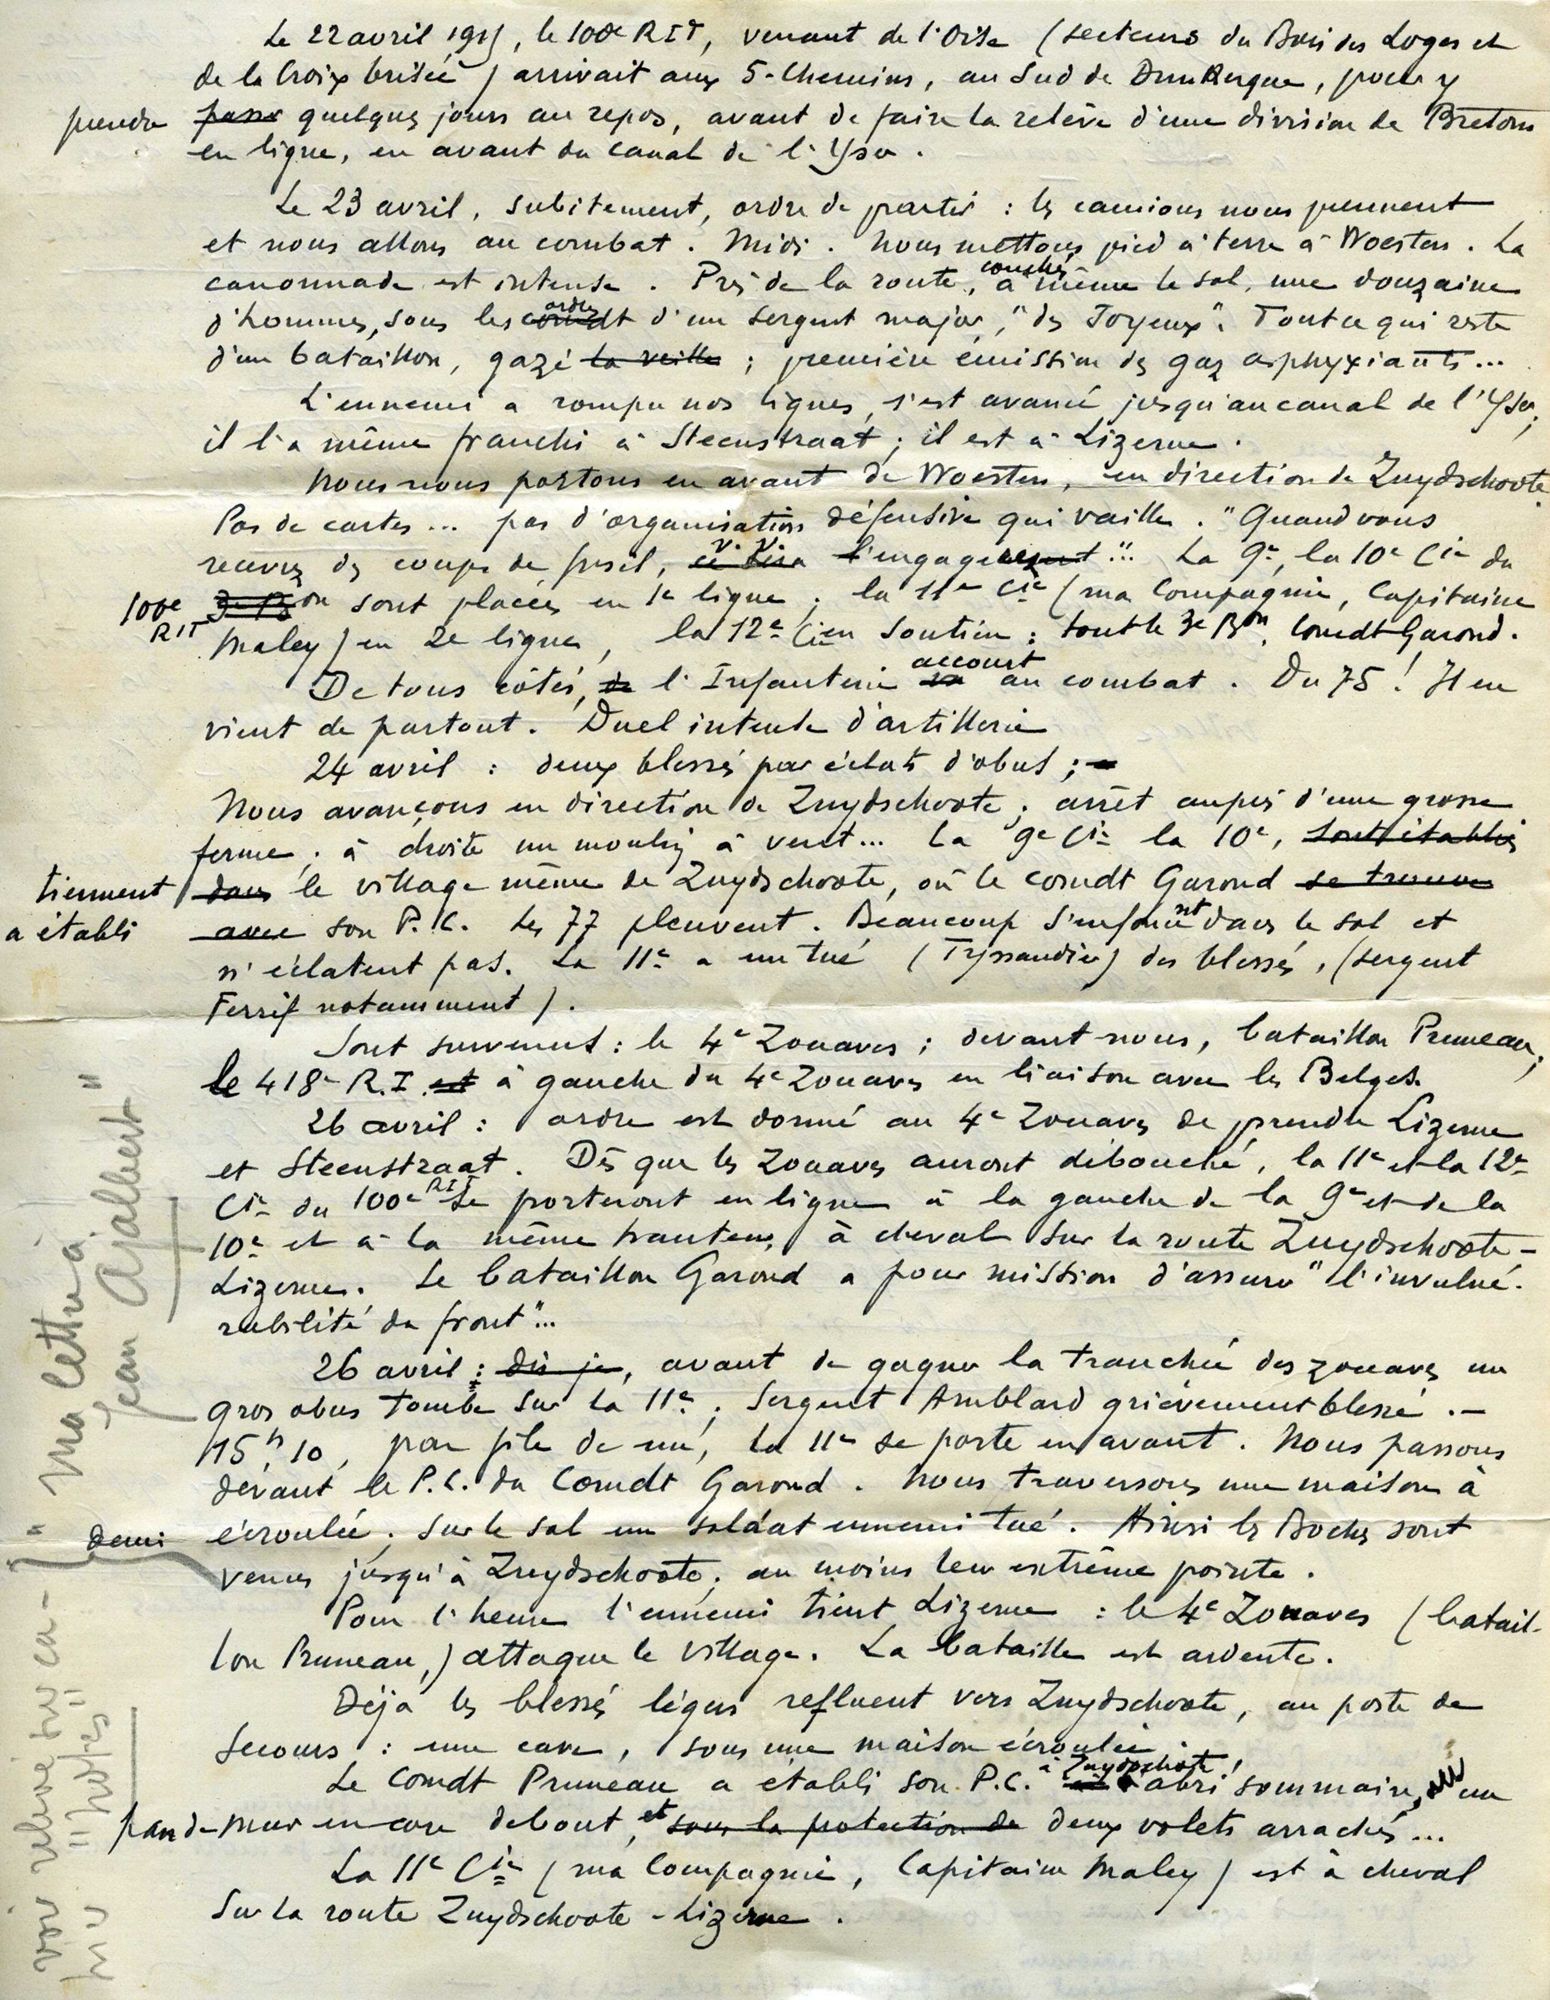 Le 22 avril 1915, le 100e RIT, venant de l'Oise (secteurs du Bois des Loges et
de la Croix brisée) arrivait aux 5-Chemins, au Sud de Dunkerque, pour y
prendre passer quelques jours au repos, avant de faire la relève d'une division de Bretons
en ligne, en avant du canal de l'Yser.
Le 23 avril, subitement, ordre de partir : les camions nous prennent
et nous allons au combat. Midi. Nous mettons pied à terre à Woesten. La
canonnade est intense. Près de la route, couchés à même le sol, une douzaine
d'hommes, sous les comdt ordres d'un sergent major, "des Joyeux". Tout ce qui reste
d'un bataillon, gazé la veille ; première émission des gaz asphyxiants...
L'ennemi a rompu nos lignes, s'est avancé jusqu'au canal de l'Yser;
il l'a même franchi à Steenstraat ; il est à Lizerne.
Nous nous portons en avant de Woesten, en direction de Zuydschoote
Pas de cartes... pas d'organisation défensive qui vaille. "Quand vous
recevrez des coups de fusil, l'engage"... La 9e, la 10e Cie du
100e RIT 3e Bon sont placées en 1e ligne ; la 11e Cie (ma Compagnie, Capitaine
Maley) en 2e ligne, la 12e Cie en soutien : tout le 3e Bon. Comdt Garond.
De tous côtés, de l'Infanterie va accourt au combat. Du 75 ! Il en
vient de partout. Duel intense d'artillerie
24 avril : deux blessés par éclats d'obus ;
Nous avançons en direction de Zuydschoote ; arrêt auprès d'une grosse
ferme ; à droite un moulin à vent... La 9e Cie la 10e, sont établies
tiennent dans le village même de Zuydschoote, où le comdt Garond se trouve
a établi avec son P.C. Les 77 pleuvent. Beaucoup s'enfoncent dans le sol et
n'éclatent pas. La 11e a un tué (Tyssandier) des blessés, (sergent
Ferrif notamment).
Sont survenus : le 4e Zouaves ; devant nous, bataillon Pruneau;
le 418e R.I. est à gauche du 4e Zouaves en liaison avec les Belges.
26 avril : ordre est donné au 4e Zouaves de prendre Lizerne
et Steenstraat. Dès que les Zouaves auront débouché, la 11e et la 12e
Cie du 100e RIT se porteront en ligne à la gauche de la 9e et de la
10e et à la même hauteur, à cheval sur la route Zuydschoote-
Lizerne. Le bataillon Garond a pour mission d'assurer "l'invulné-
rabilité du front"...
26 avril : dis-je, avant de gagner la tranchée des zouaves un
gros obus tombe sur la 11e ; Sergent Amblard grièvement blessé.-
15h,10, par file de un, la 11e se porte en avant. Nous passons
devant le P.C. du Comdt Garond. Nous traversons une maison à
demi écroulée ; sur le sol un soldat ennemi tué. Ainsi les Boches sont
venus jusqu'à Zuydschoote ; au moins leur extrême pointe.
Pour l'heure l'ennemi tient Lizerne : le 4e Zouaves (batail-
lon Pruneau,) attaque le village. La bataille est ardente.
Déjà les blessés légers refluent vers Zuydschoote, au poste de
secours : une cave, sous une maison écroulée.
Le Comdt Pruneau a établi son P.C. à Zuydschoote ! abri sommaire, un
pan de mur encore debout, et sous la protection de deux volets arrachés...
La 11e Cie (ma Compagnie, Capitaine Maley) est à cheval
sur la route Zuydschoote-Lizerne.
voir relevé tv ca- "ma lettre à
Jean Ajalbert"
"Notes"